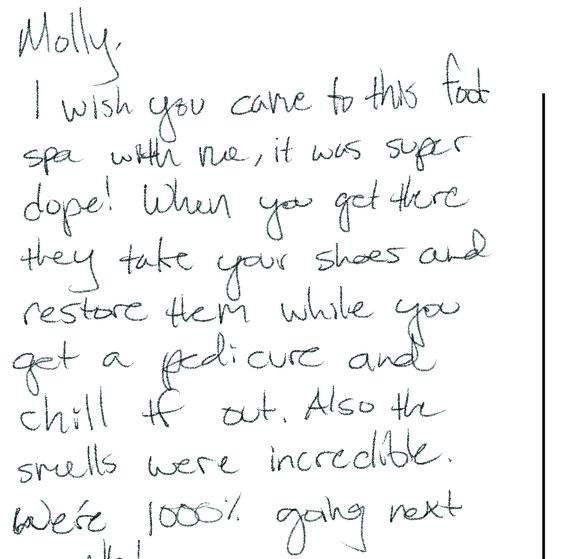 Molly,
I wish you came to this foot
spa with me, it was super
dope! When you get there
they take your shoes and
restore them while you
get a pedicure and
chill tf out. Also the
smells were incredible.
We're 1000% going next